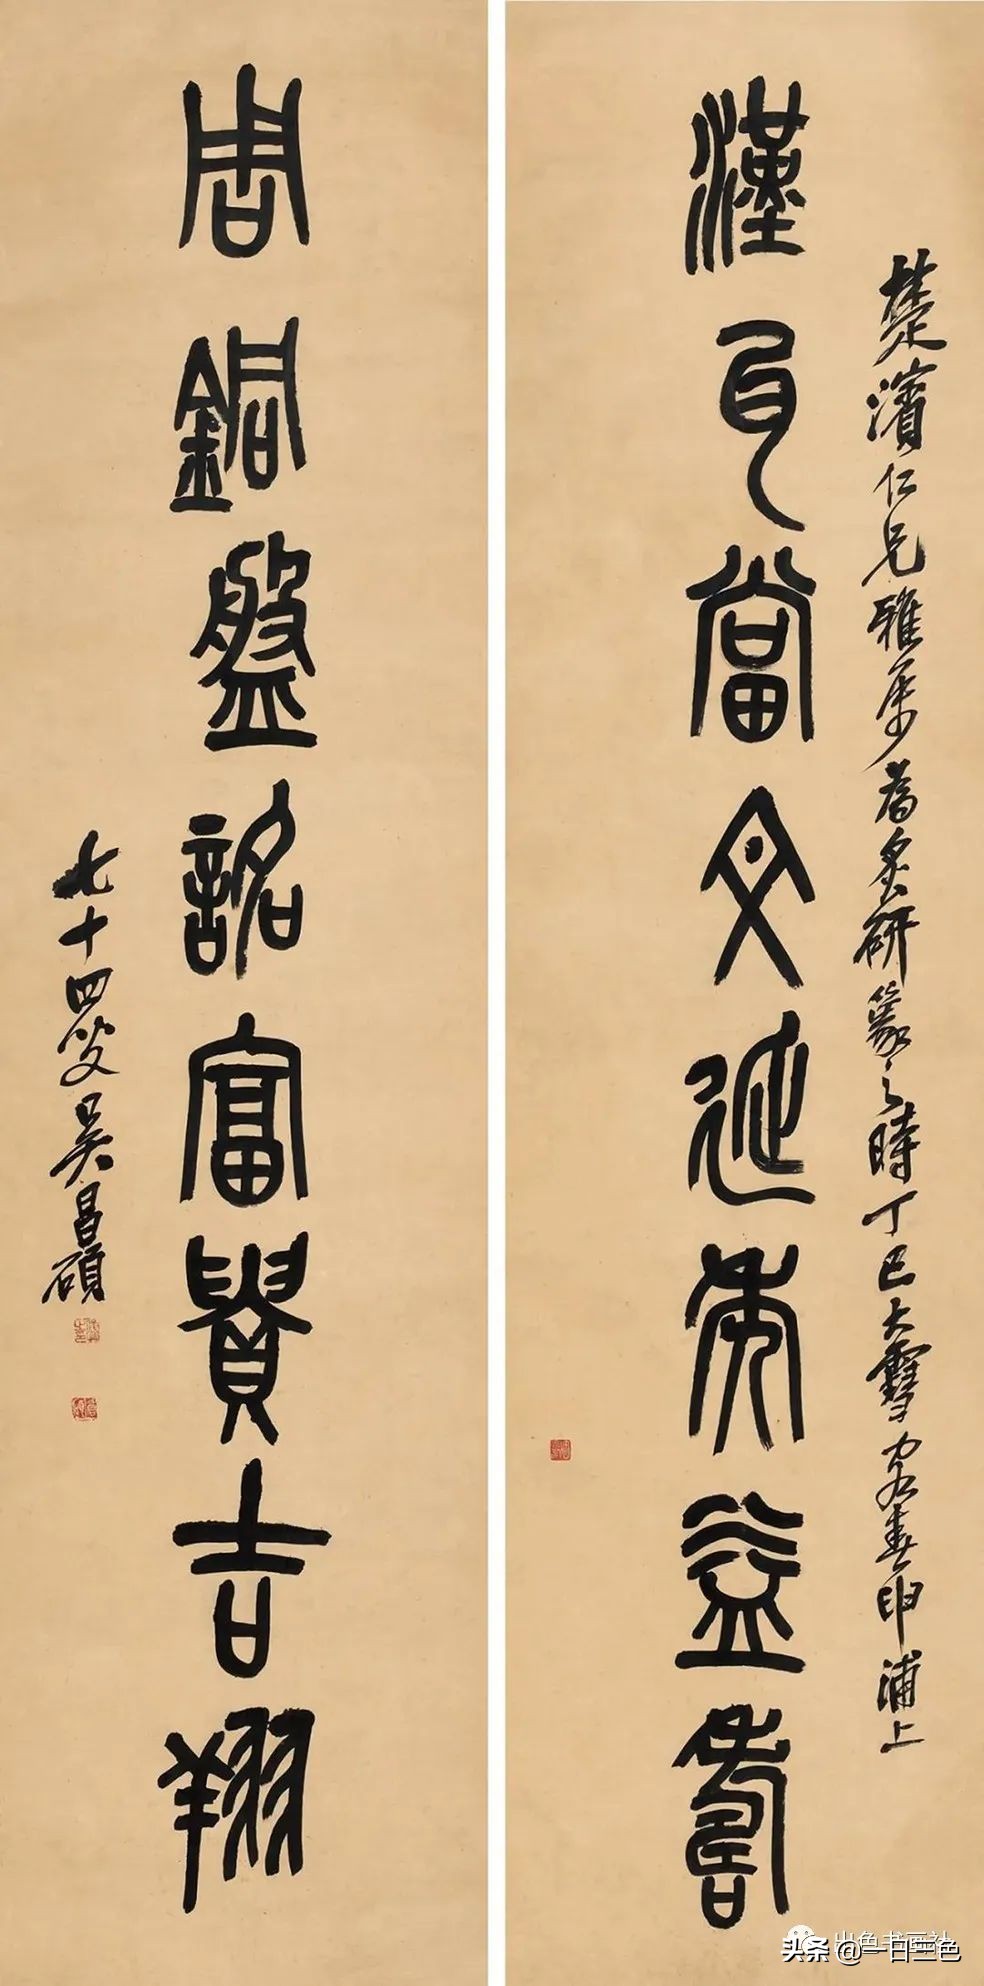 漢瓦當文延年益壽
楚濱仁兄雅屬為炙研篆之時丁巳大雪客春申浦上
周銅盤銘富貴吉翔
七十四叟吳昌碩
头条@一白二色